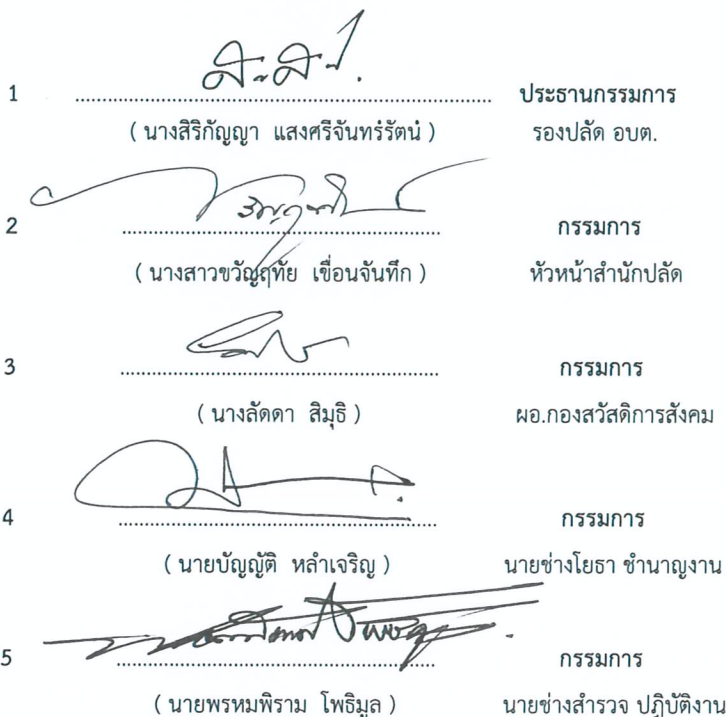 1 ................................ ประธานกรรมการ
( นางสิริกัญญา แสงศรีจันทร์รัตน์ ) รองปลัด อบต.
2 ................................ กรรมการ
( นางสาวขวัญฤทัย เขื่อนจันทึก ) หัวหน้าสำนักปลัด
3 ................................ กรรมการ
( นางลัดดา สิมุธิ ) ผอ.กองสวัสดิการสังคม
4 ................................ กรรมการ
( นายบัญญัติ หลำเจริญ ) นายช่างโยธา ชำนาญงาน
5 ................................ กรรมการ
( นายพรหมพิราม โพธิมูล ) นายช่างสำรวจ ปฏิบัติงาน